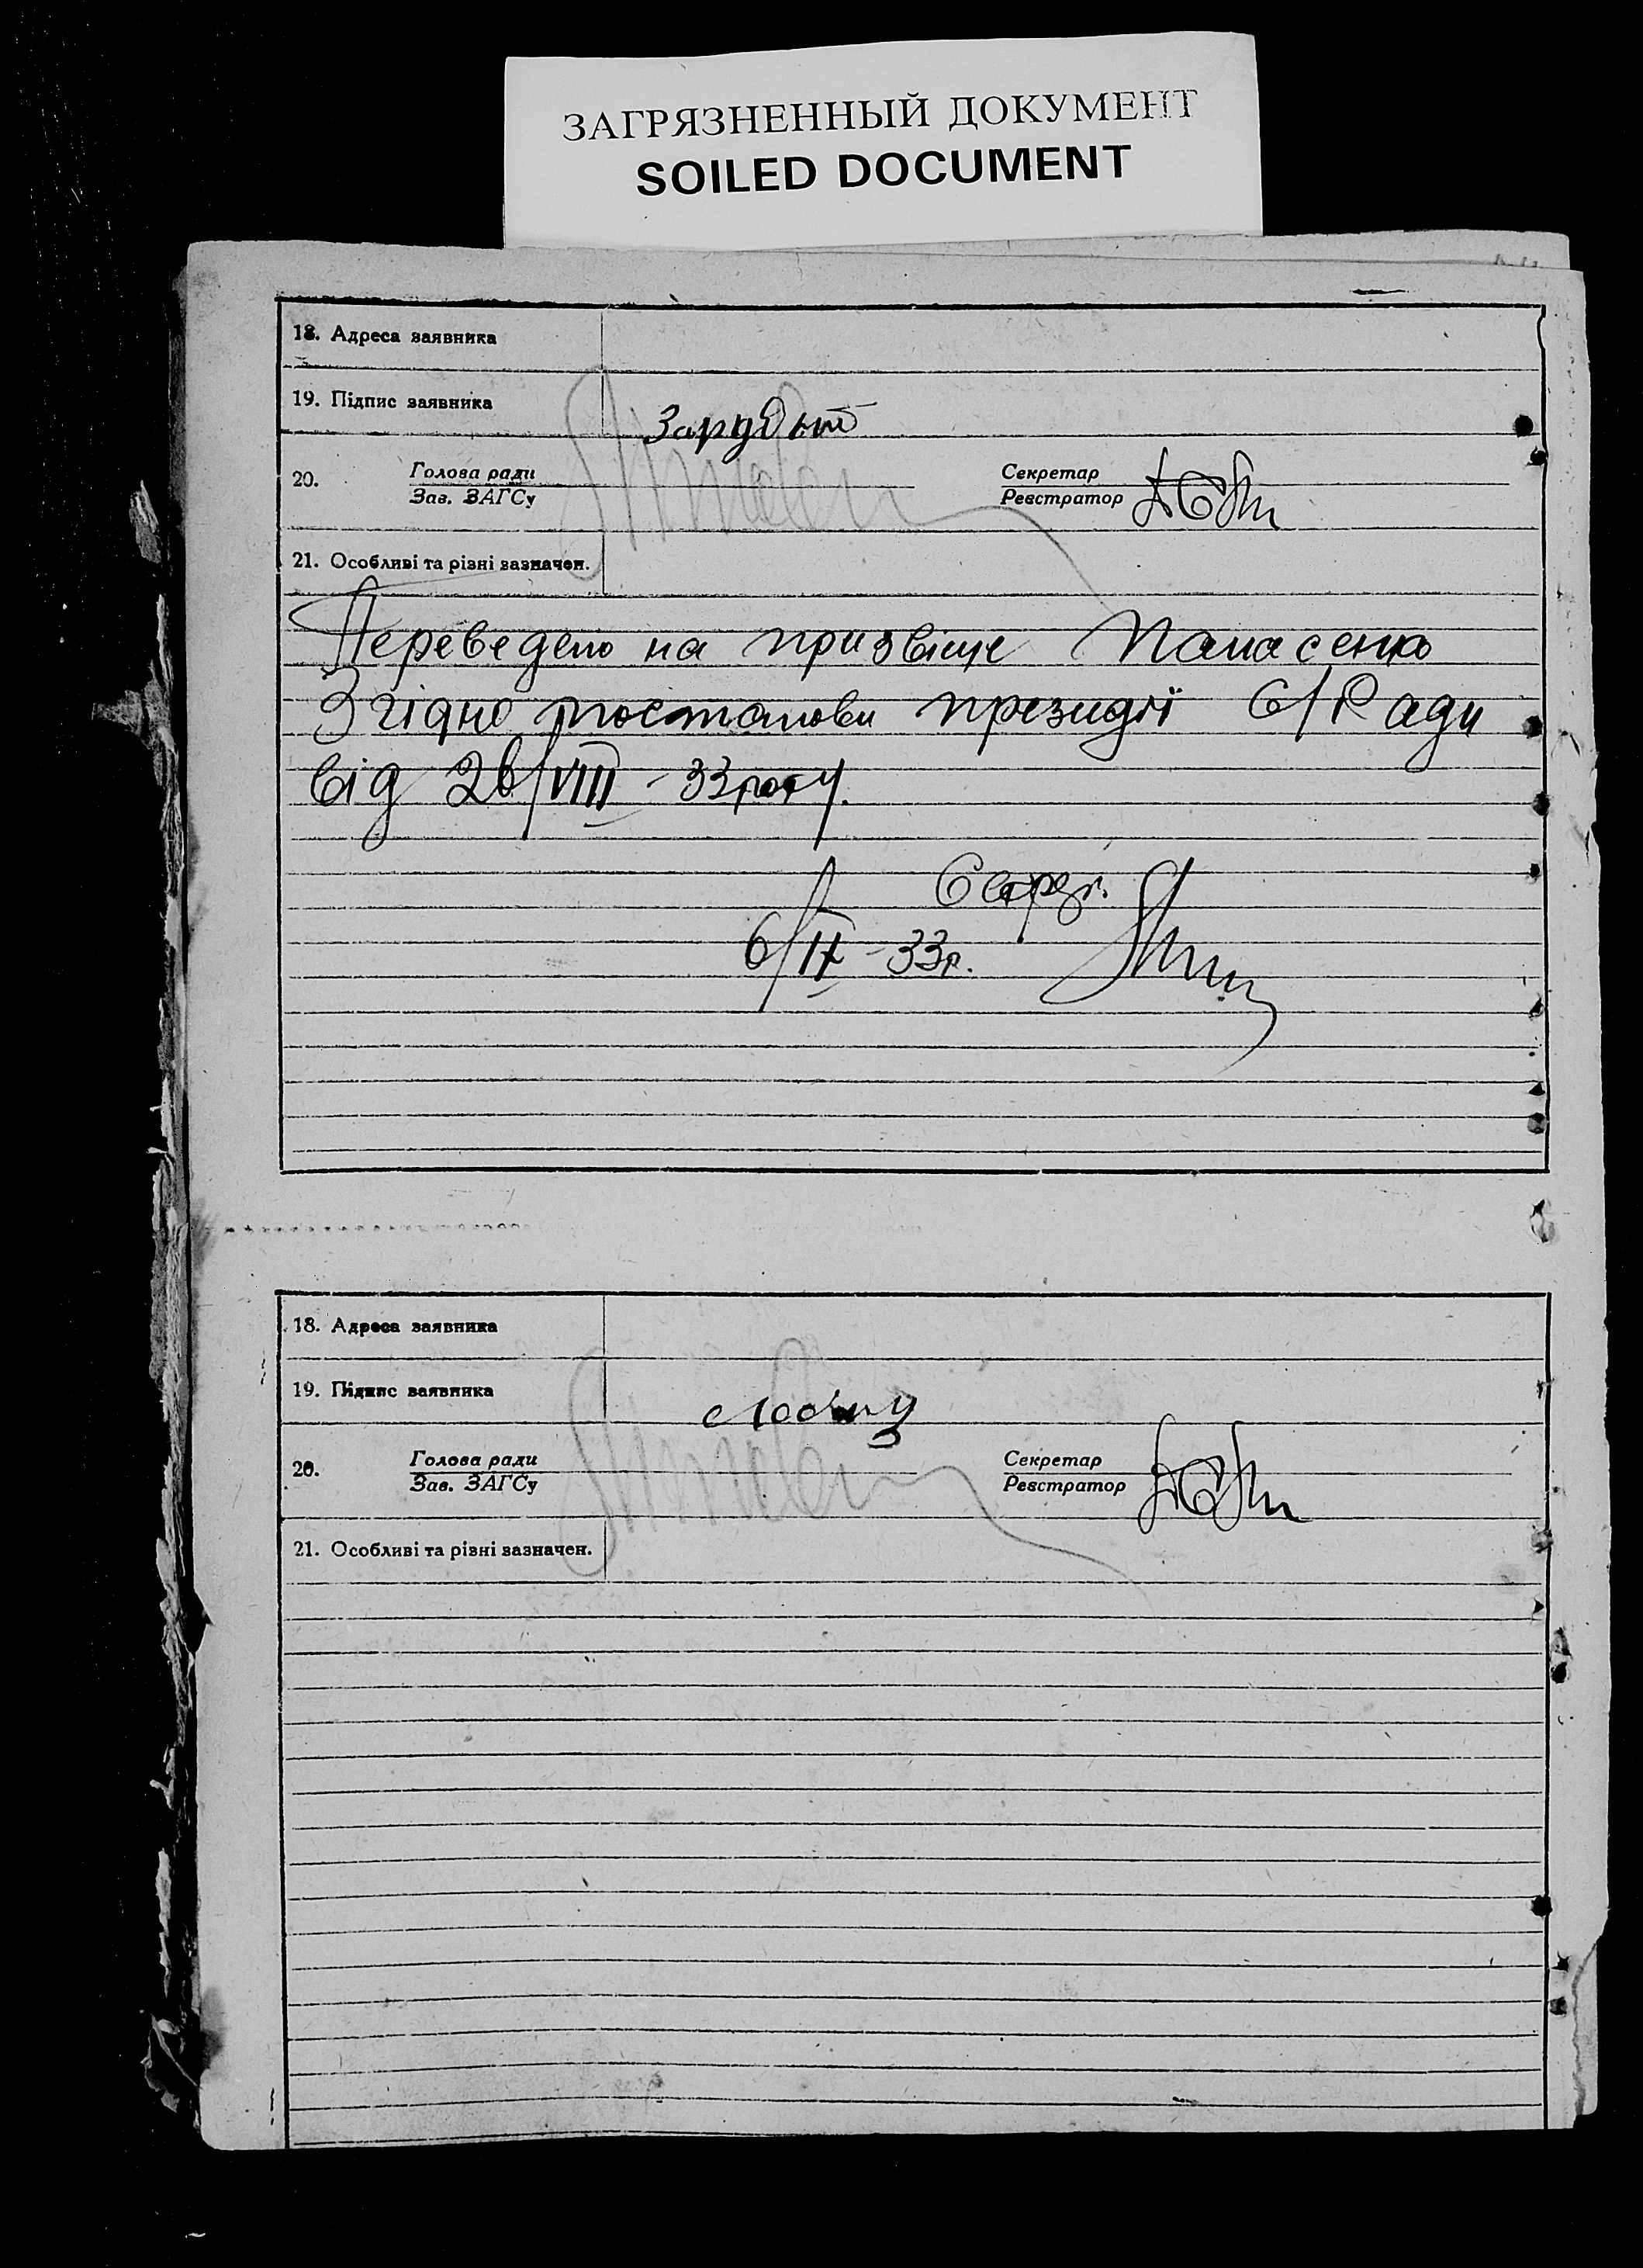 ЗАГРЯЗНЕННЫЙ ДОКУМЕНТ
SOILED DOCUMENT
18. Адреса заявника
19. Підпис заявника
20. Голова ради
Зав. ЗАГСу
Секретар
Реєстратор
21. Особливі та різні зазначен.
Переведено на призвіще Панасенко
Згідно постанови президії С/Ради
від 26/VIII - 33 року.
Секрет.
6/IX - 33 р.
18. Адреса заявника
19. Підпис заявника
20. Голова ради
Зав. ЗАГСу
Секретар
Реєстратор
21. Особливі та різні зазначен.